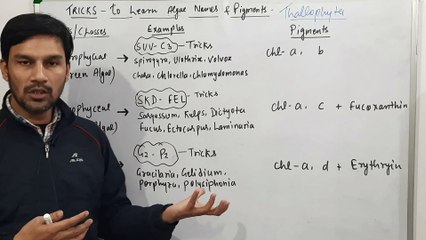 TRICKS - to Learn Algae Names & Pigments. Thallophyta
s/Classes Examples Pigments
rophyceae SUV-C3 - Tricks
een Algae) Spirogyra, Ulothrix, Volvox chl-a, b
Chara, Chlorella, Chlamydomonas
ophyceae SKD-FEL - Tricks
Algae) Sargassum, Kelps, Dictyota chl-a, c + Fucoxanthin
Fucus, Ectocarpus, Laminaria
G2-P2 - Tricks
Gracilaria, Gelidium, chl-a, d + Erythryin
Porphyra, Polysiphonia